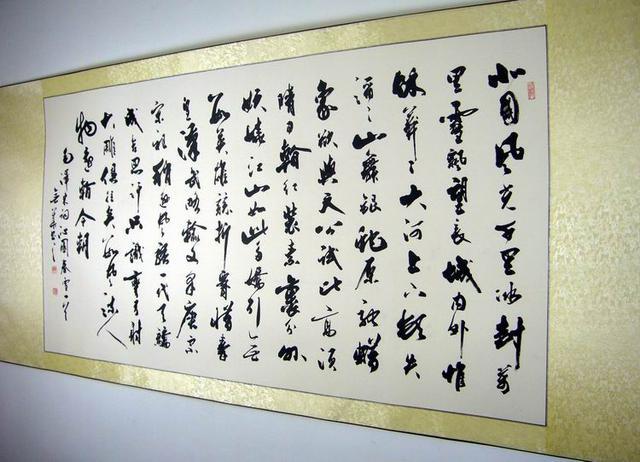 北国风光万里冰封萬
里雪飘望长城内外惟
馀莽莽大河上下顿失
滔滔山舞银蛇原驰蜡
象欲與天公试比高须
晴日看红装素裹分外
妖娆江山如此多娇引无
数英雄竞折腰惜秦
皇汉武略输文采唐宗
宋祖稍逊风骚一代天骄
成吉思汗只识弯弓射
大雕俱往矣数风流人
物还看今朝
毛泽东词沁园春雪一首